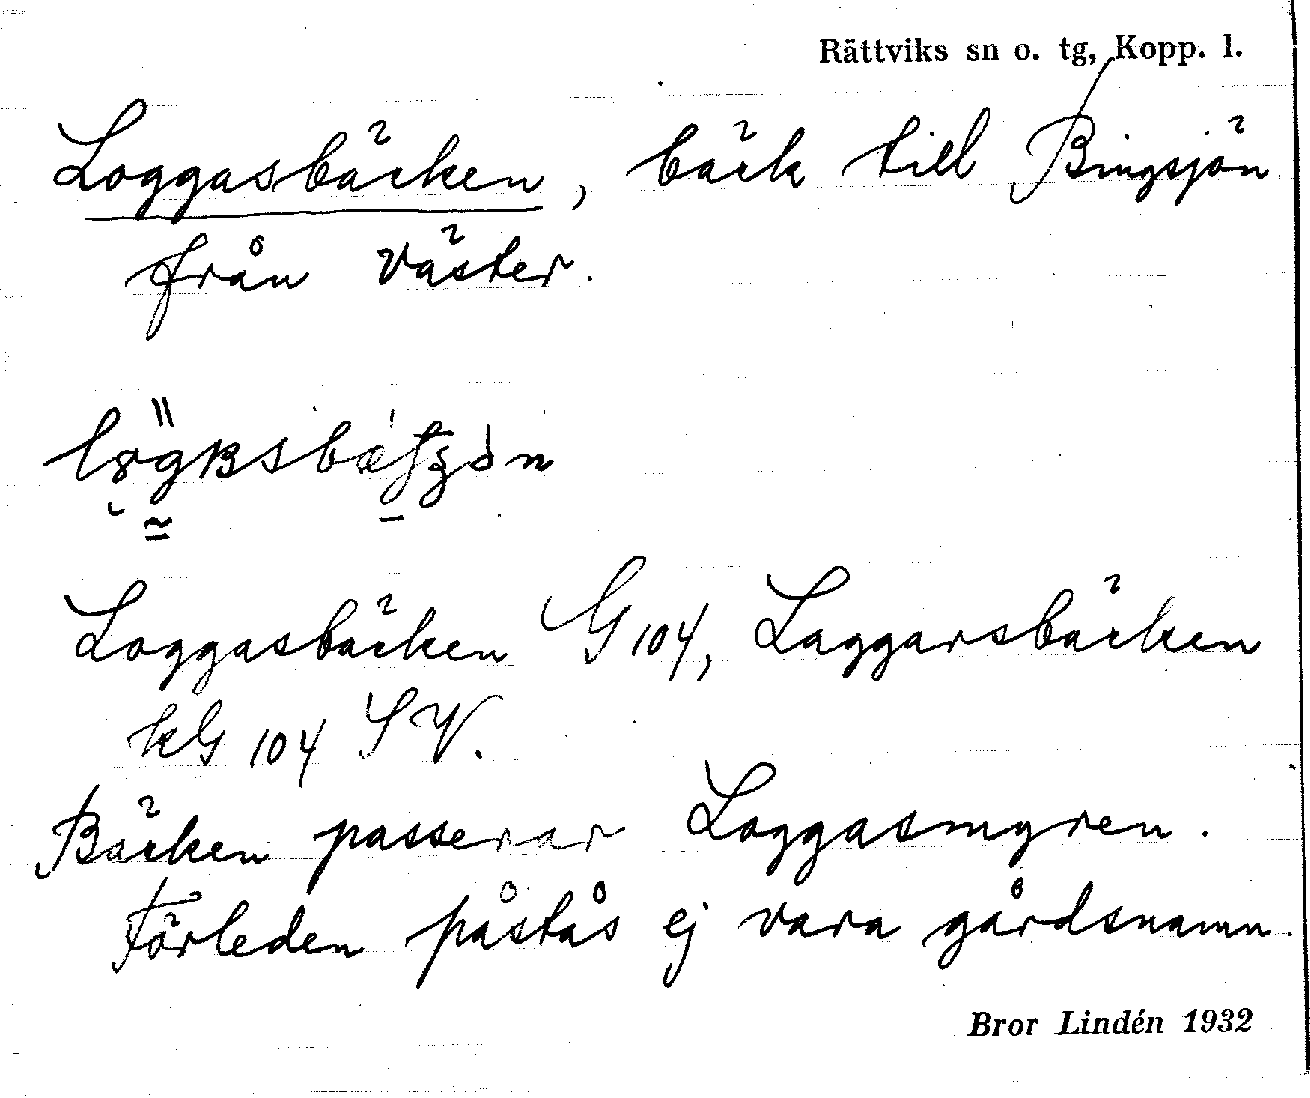 Rättviks sn o. tg, Kopp. l.
Loggasbäcken, bäck till Bingsjön
från väster.
Loggasbäcken G 104, Laggarsbäcken
kG 104 SV.
Bäcken passerar Loggasmyren.
Förleden påstås ej vara gårdsnamn.
Bror Lindén 1932